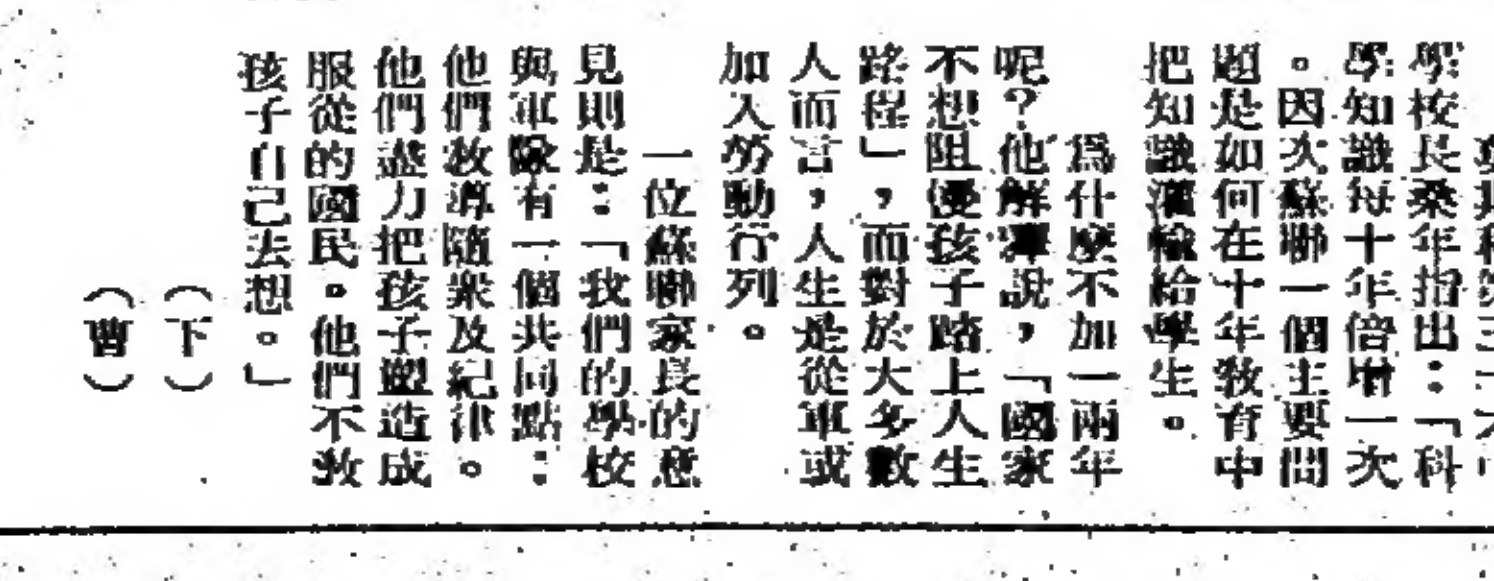 學校長桑年指出：「科
學知識每十年倍增一次
。因次蘇聯一個主要問
題是如何在十年敎育中
把知識灌輸給學生。
爲什麼不加一兩年
呢？他解釋說，「國家
不想阻優孩子踏上人生
路程」，而對於大多數
人而言，人生是從軍或
加入勞動行列。
一位蘇聯家長的意
見則是：「我們的學校
與軍隊有一個共同點：
他們敎導隨衆及紀律。
他們盡力把孩子塑造成
服從的國民。他們不敎
孩子自己去想。」
（下）
（曹）